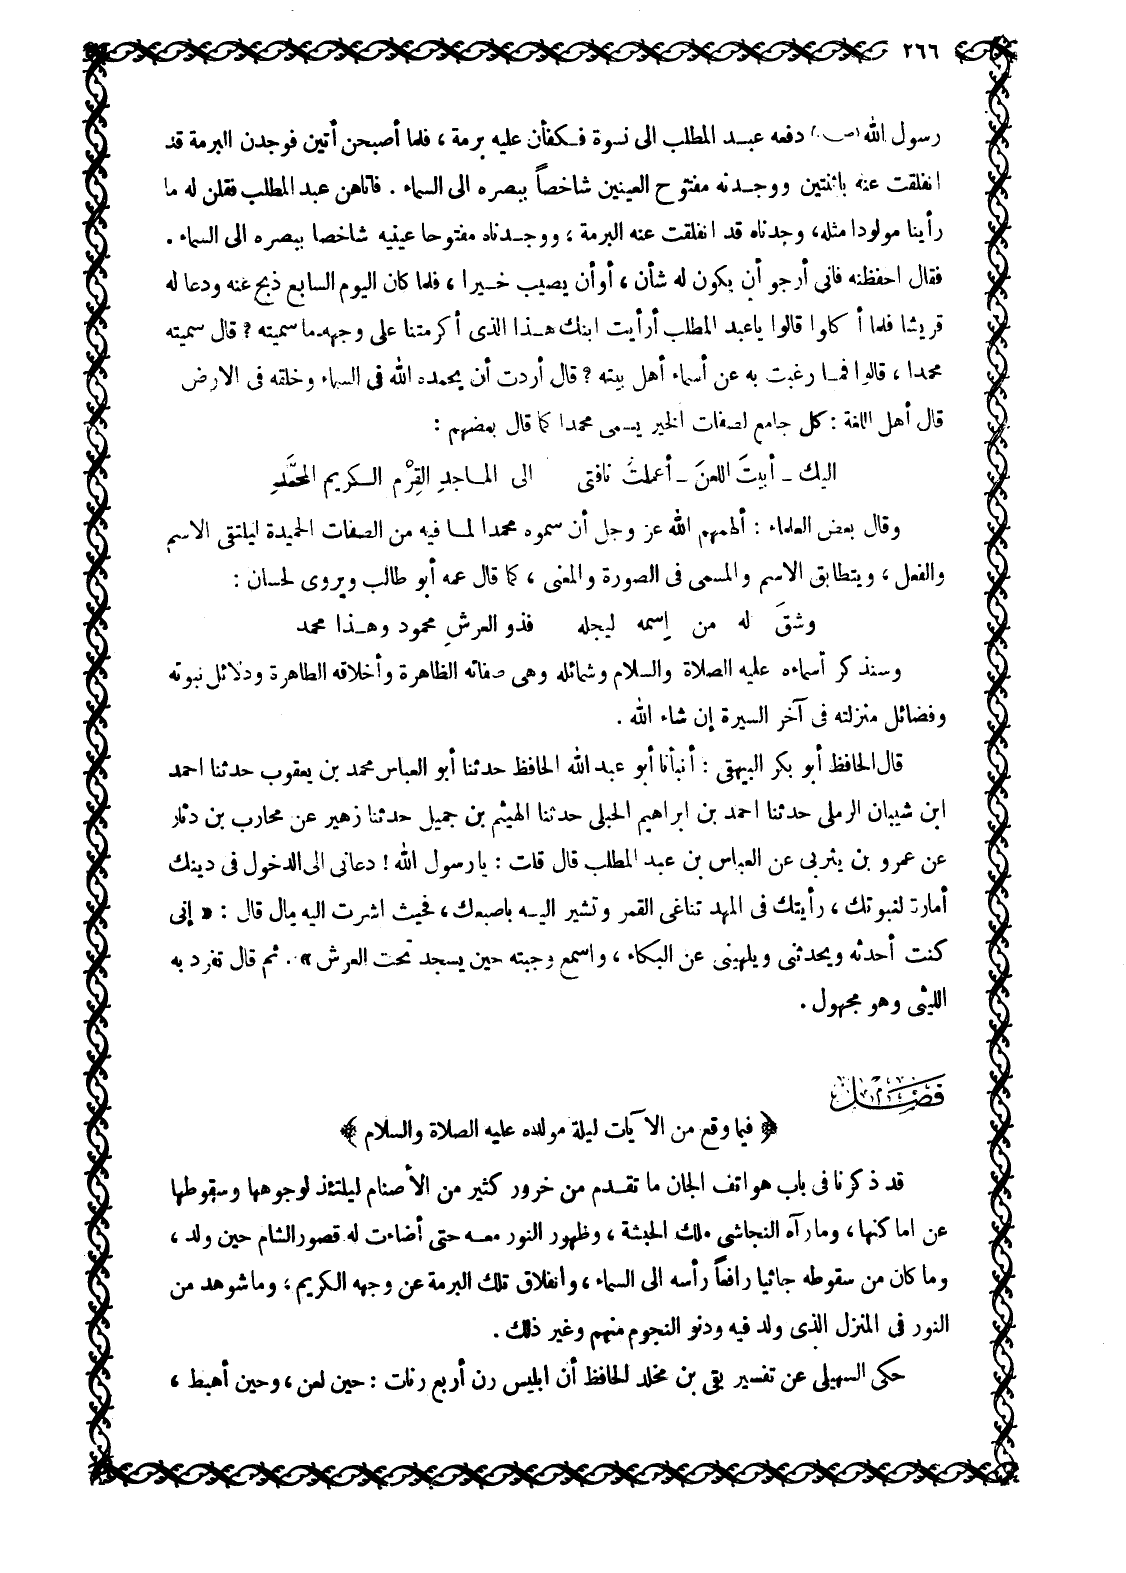 ٢٦٦
رسول الله (ص) دفعه عبد المطلب الى نسوة فكفأن عليه برمة ، فلما أصبحن أتين فوجدن البرمة قد
انفلقت عنه باثنتين ووجدنه مفتوح العينين شاخصاً ببصره الى السماء . فاتاهن عبد المطلب فقلن له ما
رأينا مولودا مثله، وجدناه قد انفلقت عنه البرمة ، ووجدناه مفتوحا عينيه شاخصا ببصره الى السماء .
فقال احفظنه فاني أرجو أن يكون له شأن ، أوأن يصيب خيرا ، فلما كان اليوم السابع ذبح عنه ودعا له
قريشا فلما أكلوا قالوا ياعبد المطلب أرأيت ابنك هذا الذى أكرمتنا على وجهه ما سميته ؟ قال سميته
محمدا ، قالوا فما رغبت به عن أسماء أهل بيته ؟ قال أردت أن يحمده الله فى السماء وخلقه فى الارض
قال أهل اللغة : كل جامع لصفات الخير يسمى محمدا كما قال بعضهم :
اليك ــ أبيتَ اللعنَ ــ أعملتُ ناقتى الى الماجدِ القِرْم الكريم المحمَّدِ
وقال بعض العلماء : ألهمهم الله عز وجل أن سموه محمدا لما فيه من الصفات الحميدة ليلتقى الاسم
والفعل ، ويتطابق الاسم والمسمى فى الصورة والمعنى ، كما قال عمه أبو طالب ويروى لحسان :
وشقَ له من إسمه ليجله فذو العرشِ محمود وهذا محمد
وسنذكر أسماءه عليه الصلاة والسلام وشمائله وهى صفاته الظاهرة وأخلاقه الطاهرة ودلائل نبوته
وفضائل منزلته فى آخر السيرة إن شاء الله .
قال الحافظ أبو بكر البيهقى : أنبأنا أبو عبد الله الحافظ حدثنا أبو العباس محمد بن يعقوب حدثنا احمد
ابن شيبان الرملى حدثنا احمد بن ابراهيم الحبلى حدثنا الهيثم بن جميل حدثنا زهير عن محارب بن دثار
عن عمرو بن يثربى عن العباس بن عبد المطلب قال قلت : يارسول الله ! دعانى الى الدخول فى دينك
أمارة لنبوتك ، رأيتك فى المهد تناغى القمر وتشير اليه باصبعك ، فحيث اشرت اليه مال قال : « إنى
كنت أحدثه ويحدثنى ويلهينى عن البكاء ، واسمع وجبته حين يسجد تحت العرش » . ثم قال تفرد به
الليثى وهو مجهول .
فصل
﴿ فيما وقع من الآيات ليلة مولده عليه الصلاة والسلام ﴾
قد ذكرنا فى باب هواتف الجان ما تقدم من خرور كثير من الأصنام ليلتئذ لوجوهها وسقوطها
عن اماكنها ، وما رآه النجاشى ملك الحبشة ، وظهور النور معه حتى أضاءت له قصور الشام حين ولد ،
وما كان من سقوطه جاثيا رافعاً رأسه الى السماء ، وانفلاق تلك البرمة عن وجهه الكريم ، وما شوهد من
النور فى المنزل الذى ولد فيه ودنو النجوم منهم وغير ذلك .
حكى السهيلى عن تفسير بقى بن مخلد الحافظ أن ابليس رن أربع رنات : حين لعن ، وحين أهبط ،